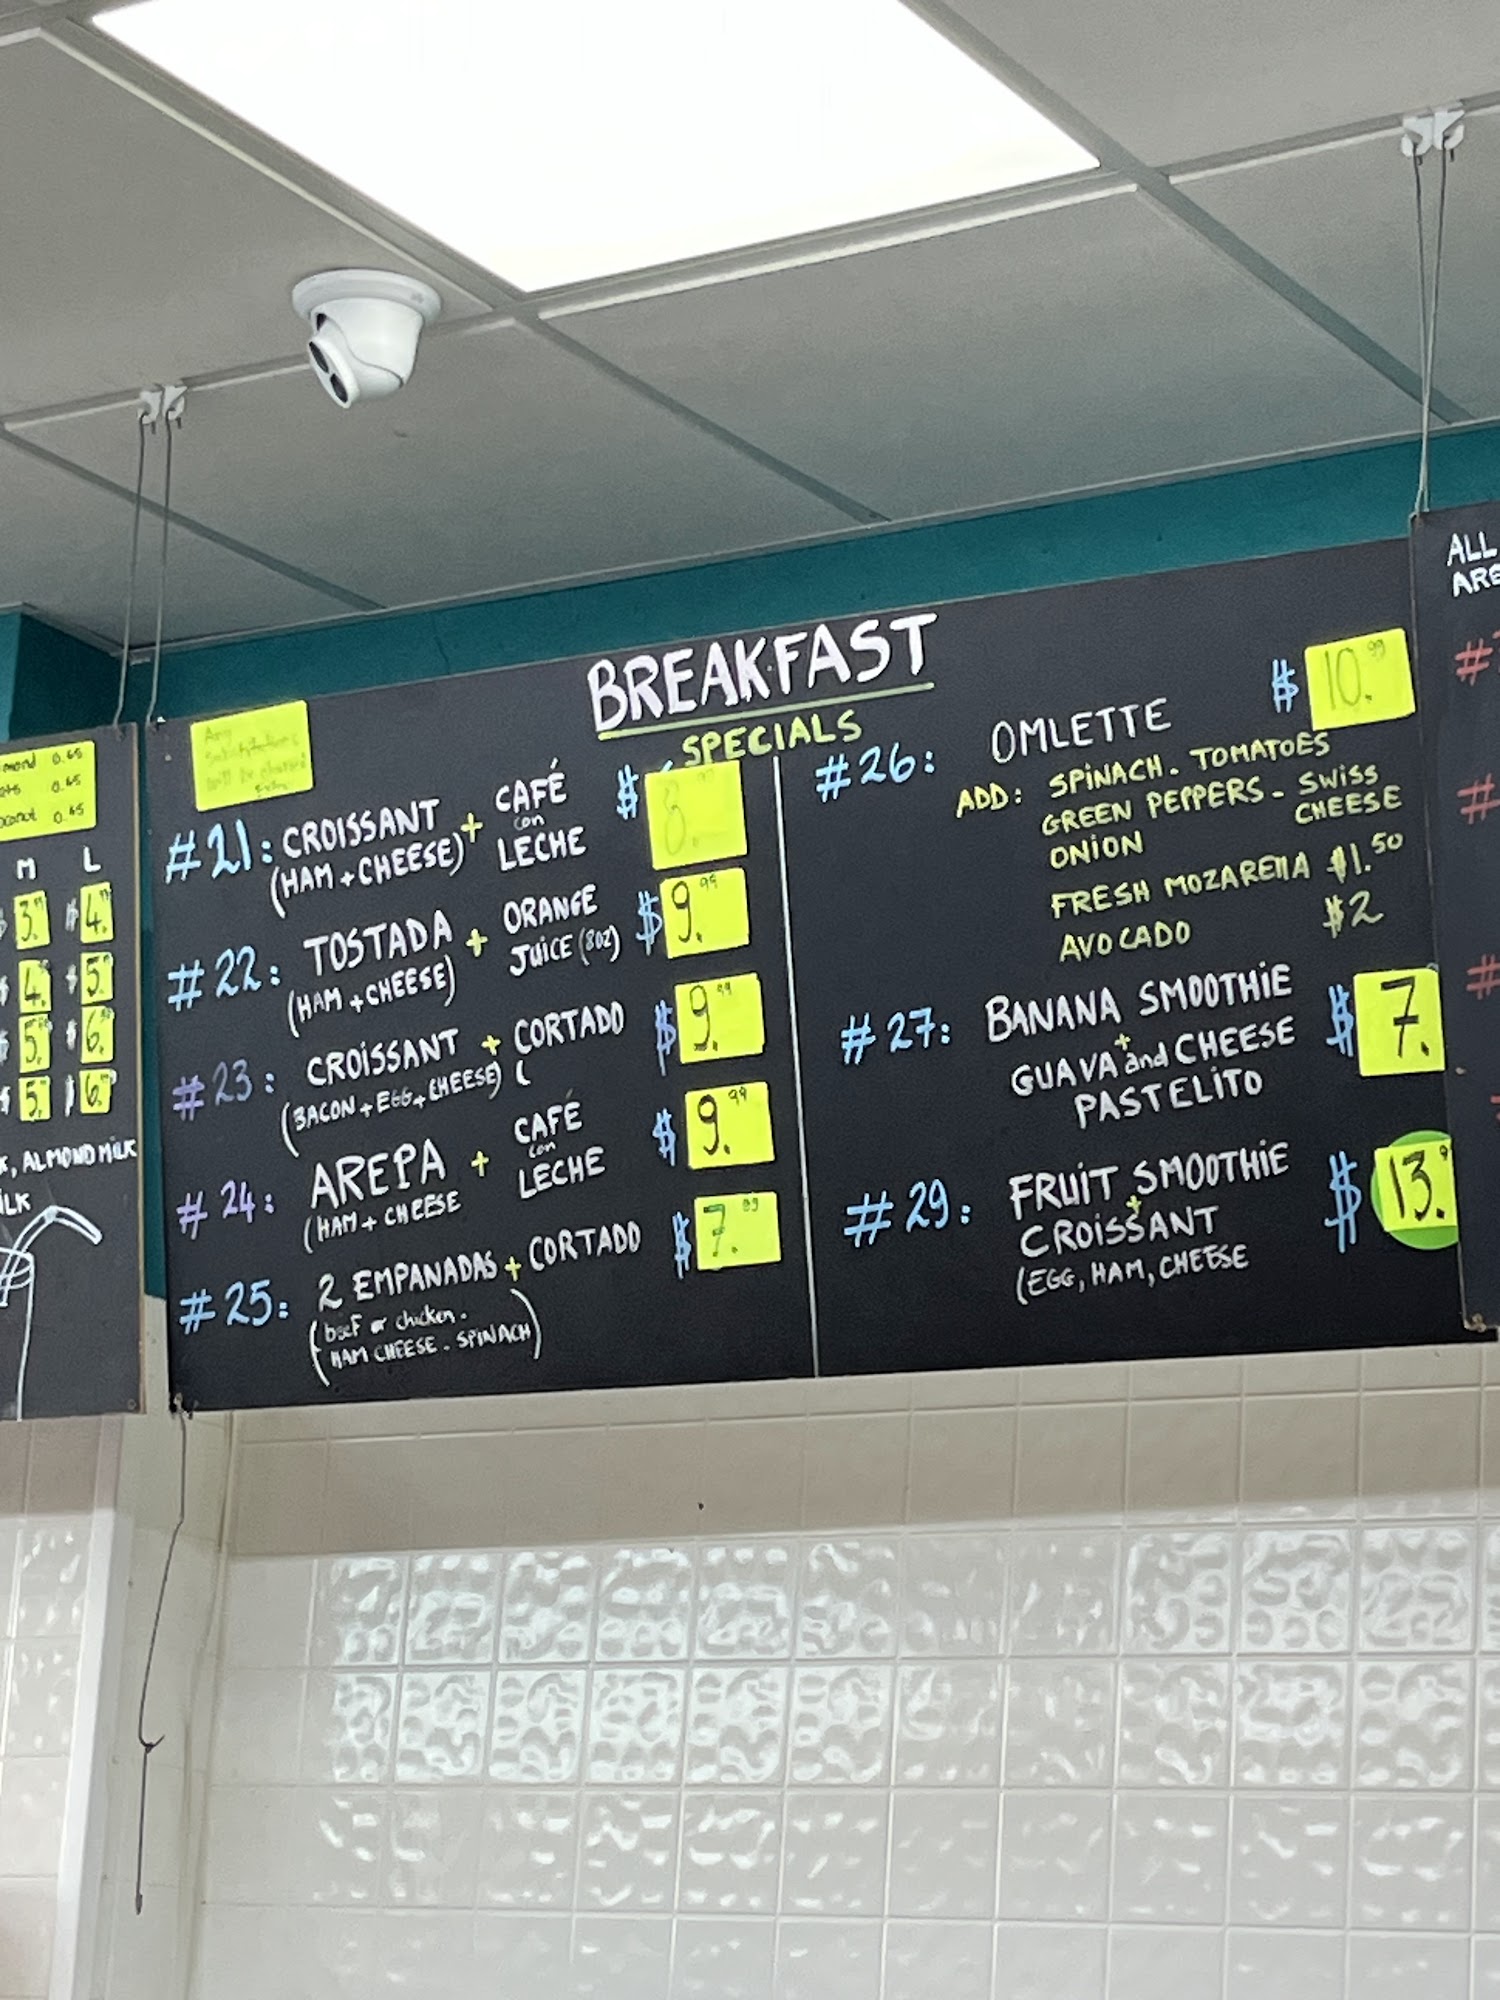 mond 0.65
0.65
oconut 0.65
M L
$ 3. $ 4.
$ 4. $ 5.
$ 5. $ 6.
$ 5. $ 6.
K, ALMOND MILK
ILK
Any
Substitutions
will be charged
extra
BREAKFAST
SPECIALS
#21: CROISSANT + CAFÉ con LECHE $ 8.99
(HAM + CHEESE)
#22: TOSTADA + ORANGE JUICE (8OZ) $ 9.99
(HAM + CHEESE)
#23: CROISSANT + CORTADO $ 9.99
(BACON + EGG + CHEESE) (
#24: AREPA + CAFÉ con LECHE $ 9.99
(HAM + CHEESE
#25: 2 EMPANADAS + CORTADO $ 7.99
(beef or chicken.
HAM CHEESE. SPINACH)
#26: OMLETTE $ 10.99
ADD: SPINACH. TOMATOES
GREEN PEPPERS - SWISS CHEESE
ONION
FRESH MOZARELLA $1.50
AVOCADO $2
#27: BANANA SMOOTHIE $ 7.
+
GUAVA and CHEESE
PASTELITO
#29: FRUIT SMOOTHIE $ 13.9
+
CROISSANT
(EGG, HAM, CHEESE
ALL
ARE
#
#
#